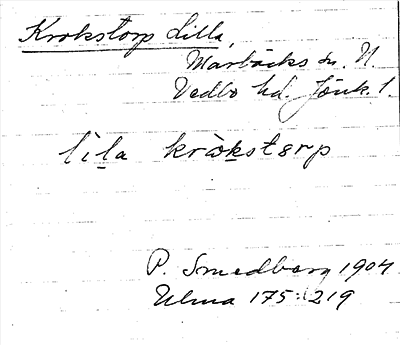 Krokstorp Lilla,
Marbäcks sn. N
Vedbo hd. Jönk. l.
lìla kròkstorp
P. Smedberg 1904
Ulma 175:219